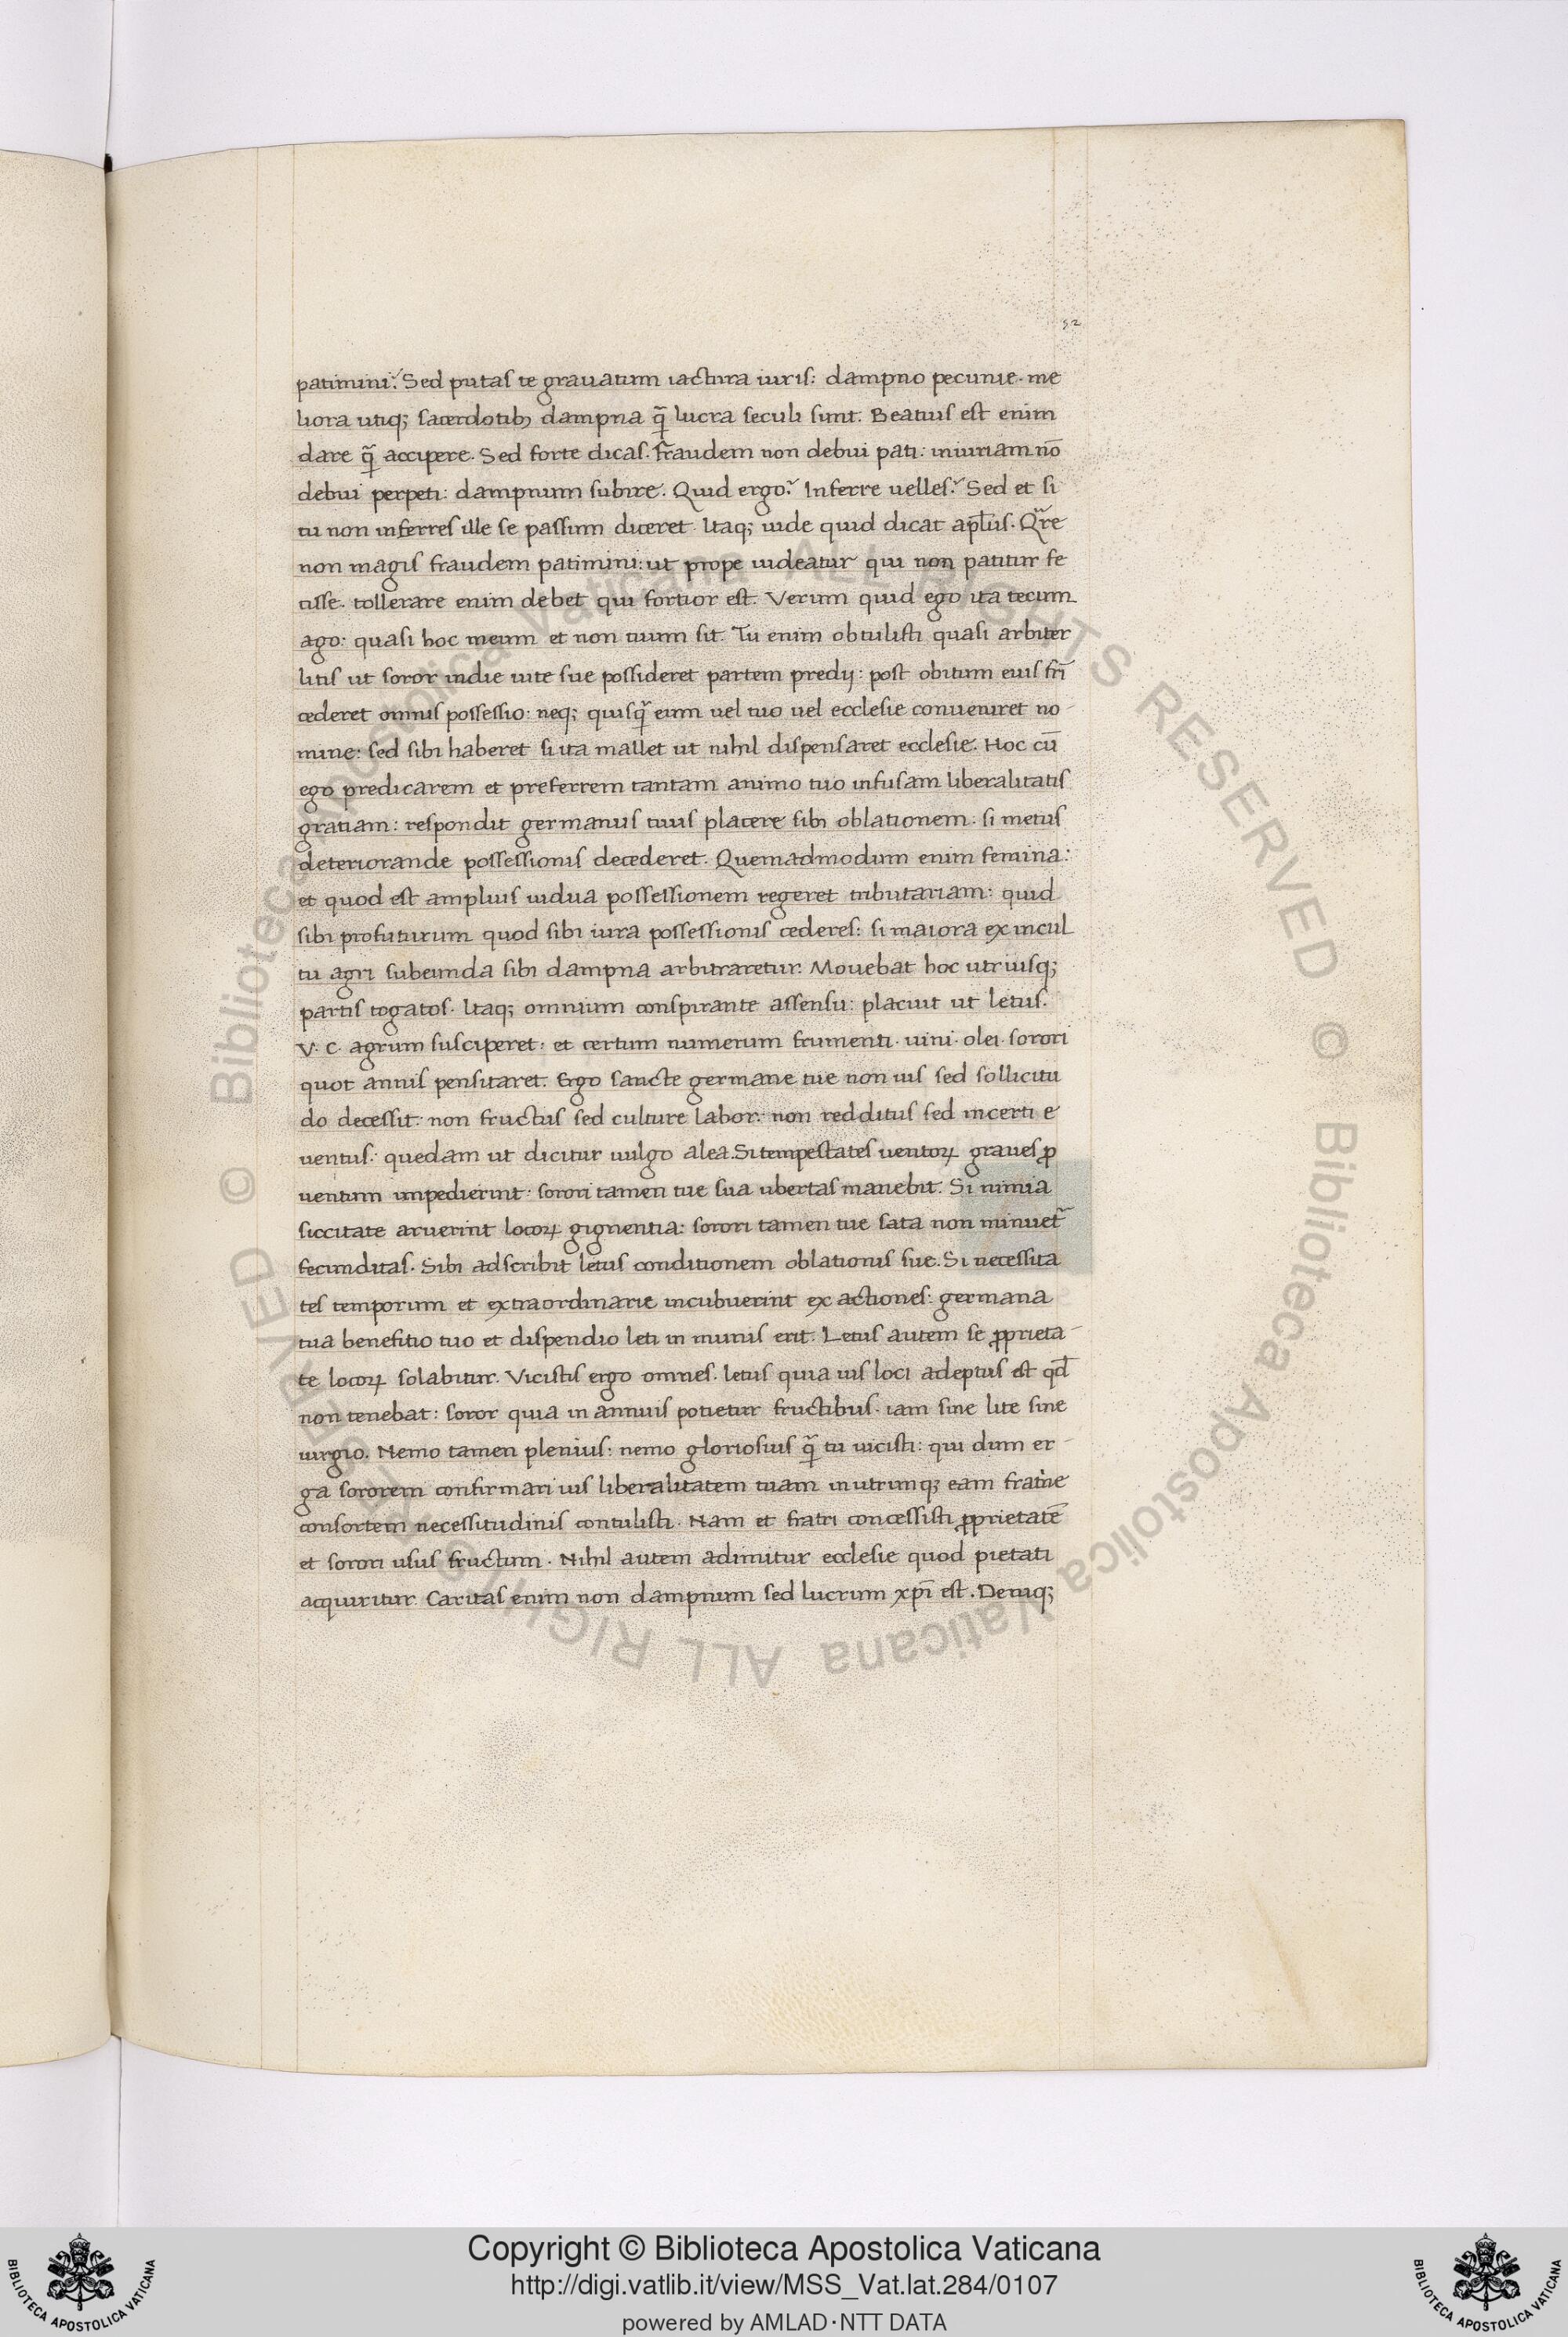 52
patimini? Sed putas te grauatum iactura iuris: dampno pecunie. me
liora utiq; sacerdotib; dampna q̃ lucra seculi sunt. Beatius est enim
dare q̃ accipere. Sed forte dicas. fraudem non debui pati: iniuriam nō
debui perpeti: dampnum subire. Quid ergo? Inferre uelles? Sed et si
tu non inferres ille se passum diceret. Itaq; uide quid dicat apl̃us. Qr̃e
non magis fraudem patimini: ut prope uideatur qui non patitur fe
cisse. tollerare enim debet qui fortior est. Verum quid ego ita tecum
ago: quasi hoc meum et non tuum sit. Tu enim obtulisti quasi arbiter
litis ut soror indie uite sue possideret partem predij: post obitum eius fr̃i
cederet omnis possessio: neq; quisq̃ eum uel tuo uel ecclesie conueniret no
mine: sed sibi haberet si ita mallet ut nihil dispensaret ecclesie. Hoc cū
ego predicarem et preferrem tantam animo tuo infusam liberalitatis
gratiam: respondit germanus tuus placere sibi oblationem: si metus
deteriorande possessionis decederet. Quemadmodum enim femina:
et quod est amplius uidua possessionem regeret tributariam: quid
sibi profuturum quod sibi iura possessionis cederes: si maiora ex incul
tu agri subeunda sibi dampna arbitraretur. Mouebat hoc utriusq;
partis togatos. Itaq; omnium conspirante assensu: placuit ut letus.
V. C. agrum susciperet: et certum numerum frumenti. uini. olei. sorori
quot annis pensitaret. Ergo sancte germane tue non ius sed sollicitu
do decessit: non fructus sed culture labor: non redditus sed incerti e
uentus: quedam ut dicitur uulgo alea. Si tempestates uentoꝝ graues ꝓ
uentum impedierint: sorori tamen tue sua ubertas manebit. Si nimia
siccitate aruerint locoꝝ gignentia: sorori tamen tue sata non minuet᷑
fecunditas. Sibi adscribit letus conditionem oblationis sue. Si necessita
tes temporum et extraordinarie incubuerint ex actiones: germana
tua benefitio tuo et dispendio leti in munis erit. Letus autem se ꝓprieta
te locoꝝ solabitur. Vicistis ergo omnes. letus quia ius loci adeptus est qd̄
non tenebat: soror quia in annuis potietur fructibus. iam sine lite sine
iurgio. Nemo tamen plenius: nemo gloriosius q̃ tu uicisti: qui dum er
ga sororem confirmari uis liberalitatem tuam in utrunq; eam fratrie
consortem necessitudinis contulisti. Nam et fratri concessisti ꝓprietatē
et sorori usus fructum. Nihil autem adimitur ecclesie quod pietati
acquiritur. Caritas enim non dampnum sed lucrum xp̄i est. Deniq;
© Biblioteca Apostolica Vaticana ALL RIGHTS RESERVED © Biblioteca Apostolica Vaticana ALL RIGHTS RESERVED
BIBLIOTECA APOSTOLICA VATICANA
Copyright © Biblioteca Apostolica Vaticana
http://digi.vatlib.it/view/MSS_Vat.lat.284/0107
powered by AMLAD·NTT DATA
BIBLIOTECA APOSTOLICA VATICANA